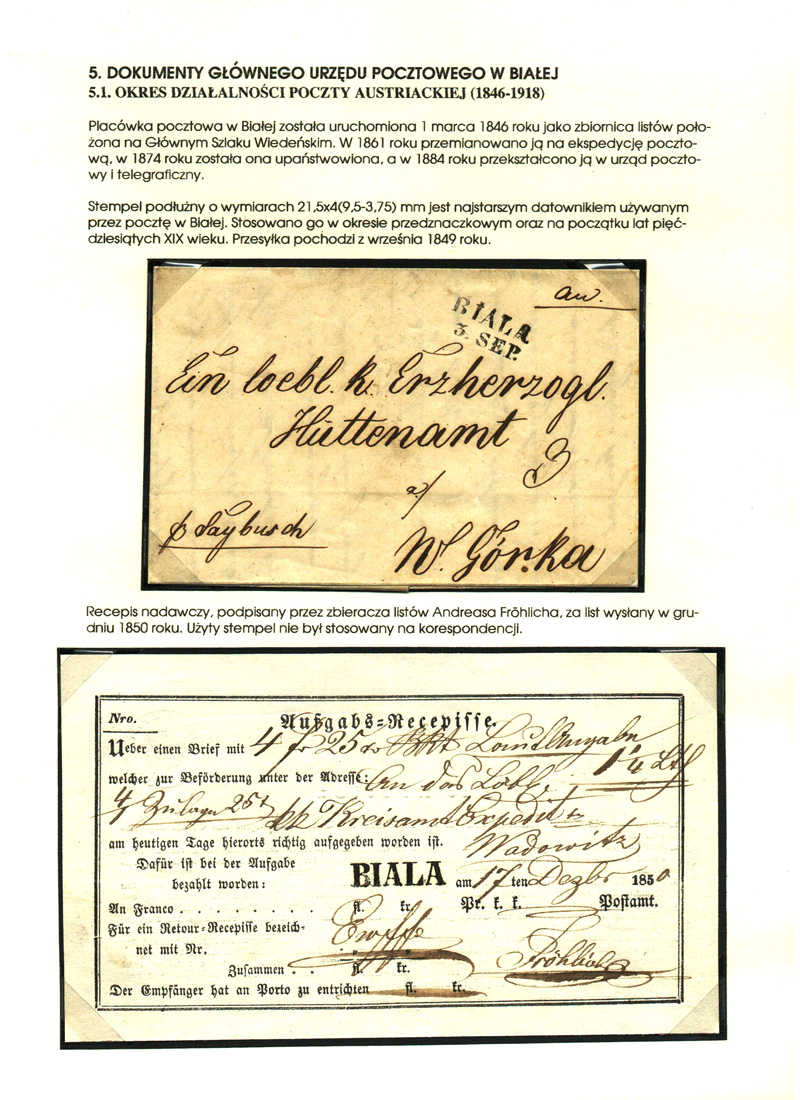 5. DOKUMENTY GŁÓWNEGO URZĘDU POCZTOWEGO W BIAŁEJ
5.1. OKRES DZIAŁALNOŚCI POCZTY AUSTRIACKIEJ (1846-1918)
Placówka pocztowa w Białej została uruchomiona 1 marca 1846 roku jako zbiornica listów poło-
żona na Głównym Szlaku Wiedeńskim. W 1861 roku przemianowano ją na ekspedycję poczto-
wą, w 1874 roku została ona upaństwowiona, a w 1884 roku przekształcono ją w urząd poczto-
wy i telegraficzny.
Stempel podłużny o wymiarach 21,5x4(9,5-3,75) mm jest najstarszym datownikiem używanym
przez pocztę w Białej. Stosowano go w okresie przedznaczkowym oraz na początku lat pięć-
dziesiątych XIX wieku. Przesyłka pochodzi z września 1849 roku.
BIALA
3. SEP.
Ein loebl. k. Erzherzogl.
Hüttenamt
a/
p Saybusch
W. Górka
Recepis nadawczy, podpisany przez zbieracza listów Andreasa Fröhlicha, za list wysłany w gru-
dniu 1850 roku. Użyty stempel nie był stosowany na korespondencji.
Nro.
Aufgabs-Recepisse.
Ueber einen Brief mit 4 fr 25 x Laut Angabe
welcher zur Beförderung unter der Adresse: An das Löbl.
kk Kreisamt Expedit
am heutigen Tage hierorts richtig aufgegeben worden ist. Wadowitz
Dafür ist bei der Aufgabe
bezahlt worden: BIALA am 17 ten Dezbr 1850
An Franco . . . . . . . . fl. kr. Pr. k. k. Postamt.
Für ein Retour-Recepisse bezeich-
net mit Nr.
Zusammen . . fl. kr. Fröhlich
Der Empfänger hat an Porto zu entrichten fl. kr.